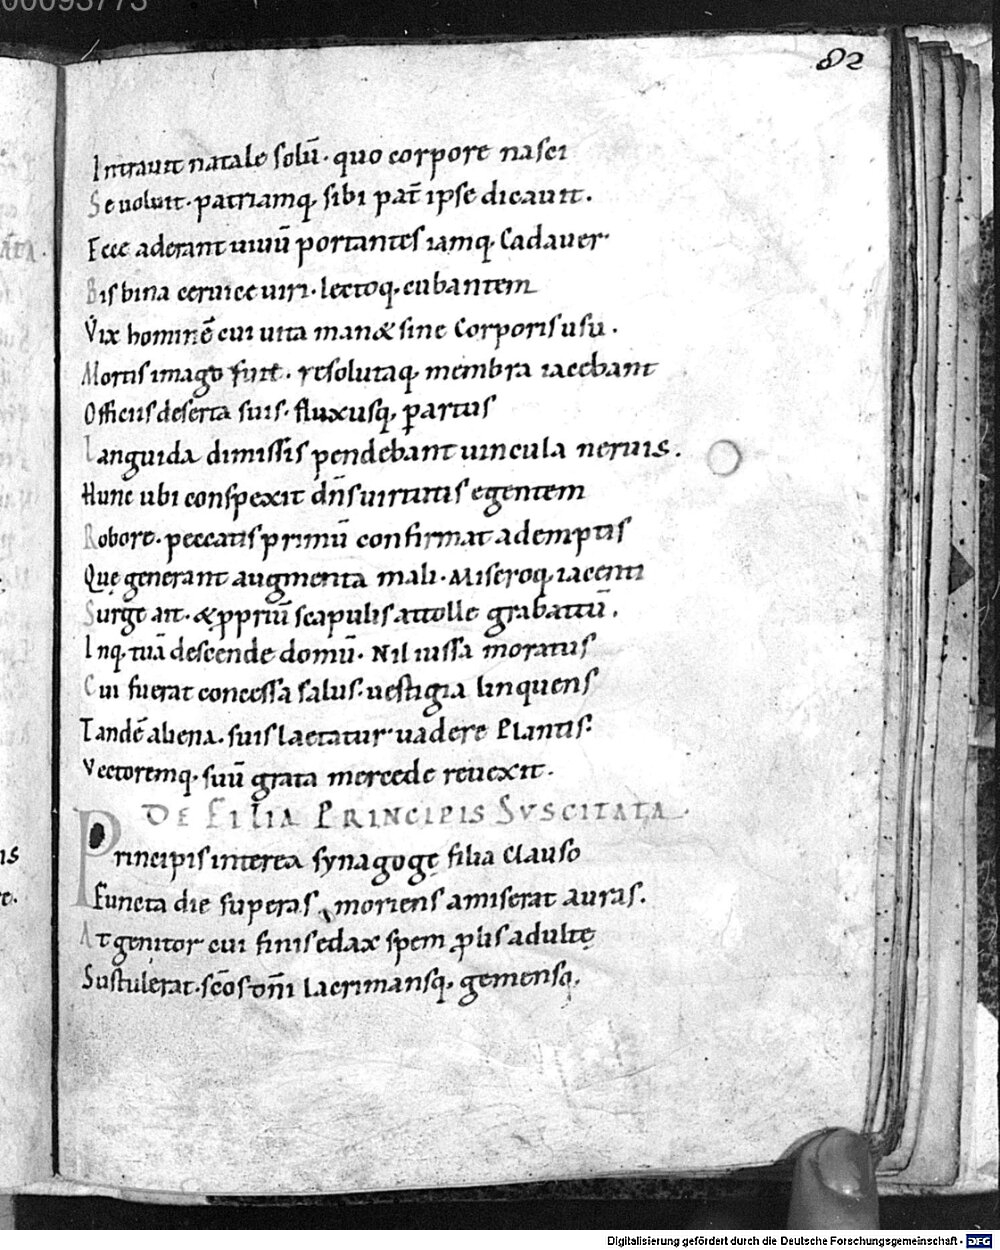 00093773
82
Intrauit natale solū · quo corpore nasci
Se uoluit · patriamq; sibi pat̄ ipse dicauit.
Ecce aderant uiuū portantes iamq; Cadauer·
Bis bina ceruice uiri · lectoq; cubantem
Vix hominē cui uita man& sine Corporis usu .
Mortis imago fuit · resolutaq; membra iacebant
Officiis deserta suis · fluxusq; ꝑ artus
Languida dimissis pendebant uincula neruis .
Hunc ubi conspexit dn̄s uirtutis egentem
Robore · peccatis primū confirmat ademptis
Quę generant augmenta mali · Miseroq; iacenti
Surge ait · & ꝓpriū scapulis attolle grabattū .
Inq; tuā descende domū · Nil iussa moratus
Cui fuerat concessa salus · uestigia linquens
Tandē aliena · suis laetatur uadere Plantis·
Vectoremq; suū grata mercede reuexit ·
DE FILIA PRINCIPIS SVSCITATA
Principis interea synagogę filia Clauso
Functa die superas moriens amiserat auras .
At genitor cui finis edax spem ꝓlis adultę
Sustulerat · sc̄os om̄i lacrimansq; gemensq;
Digitalisierung gefördert durch die Deutsche Forschungsgemeinschaft - DFG